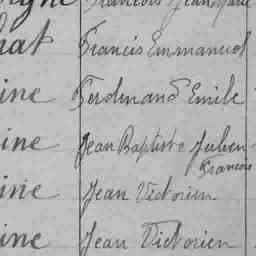 François Jean Marie
hat Francis Emmanuel
ine Ferdinand Emile
ine Jean Baptiste Julien
François
ine Jean Victorien
ine Jean Victorien